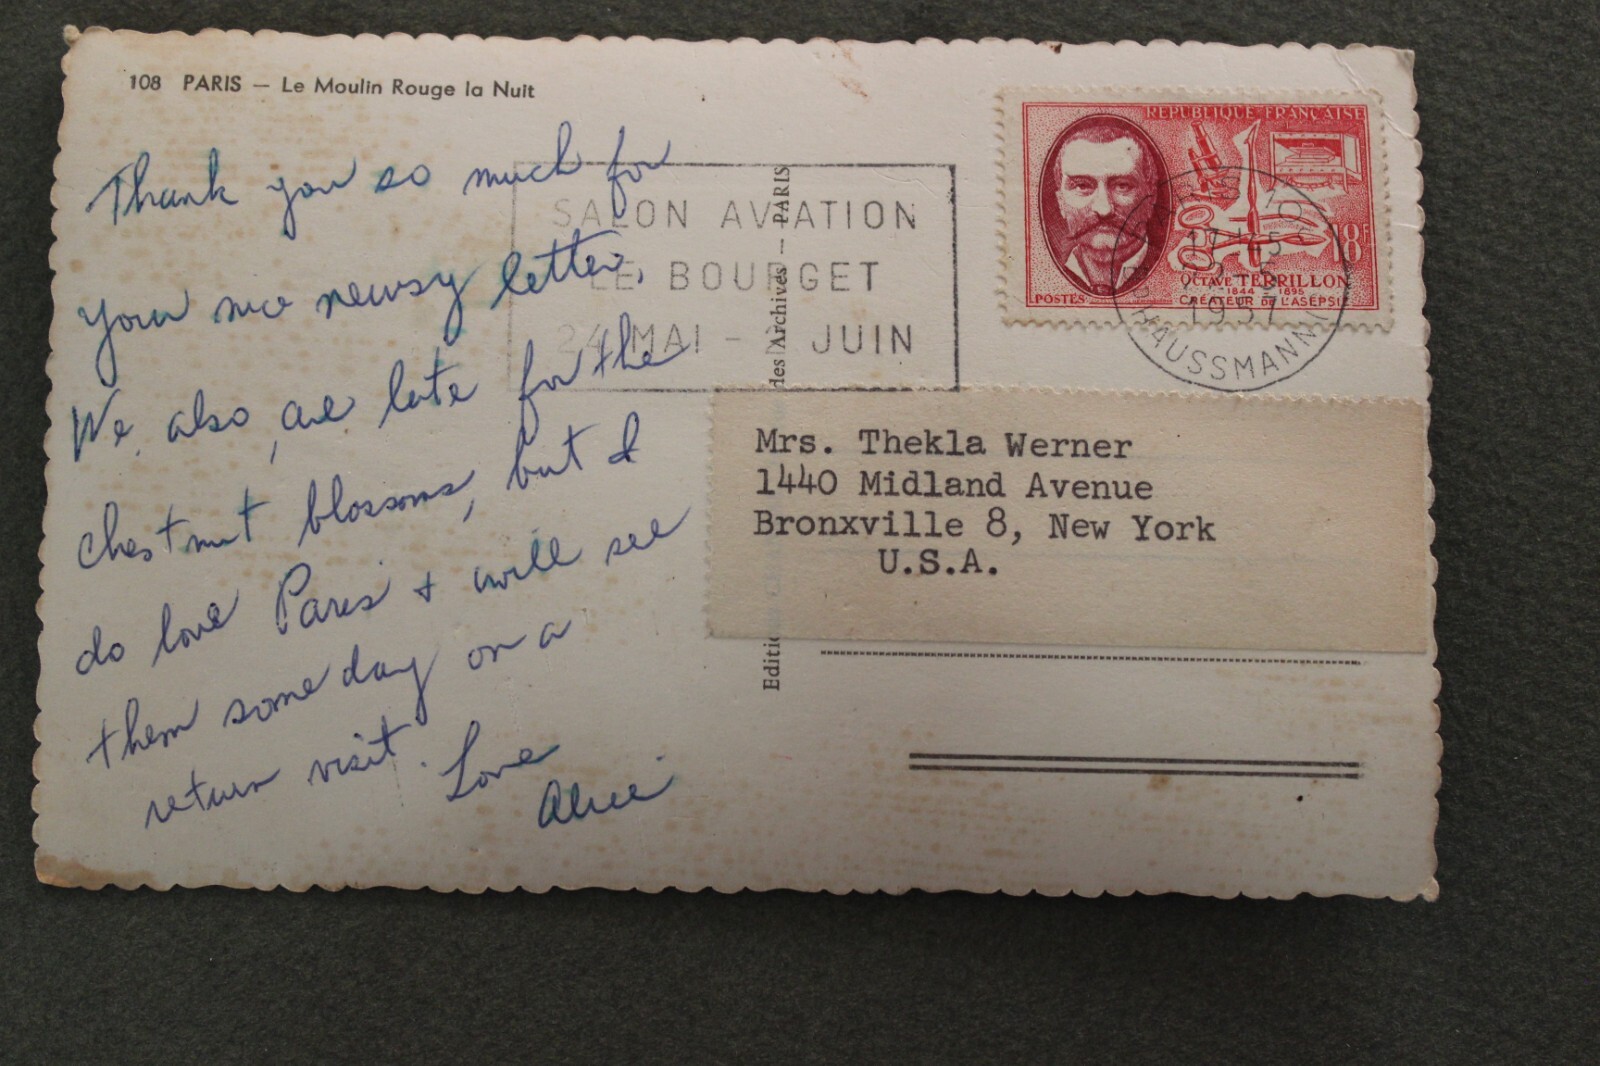 108 PARIS — Le Moulin Rouge la Nuit
Thank you so much for
your nice newsy letter.
We also are late for the
chestnut blossoms, but I
do love Paris + will see
them some day on a
return visit. Love
Alice
SALON AVIATION
LE BOURGET
24 MAI - JUIN
des Archives — PARIS
Editi
REPUBLIQUE FRANÇAISE
18F
OCTAVE TERRILLON
1844 1895
CRÉATEUR DE L'ASEPSIE
POSTES
1957
HAUSSMANN
Mrs. Thekla Werner
1440 Midland Avenue
Bronxville 8, New York
U.S.A.